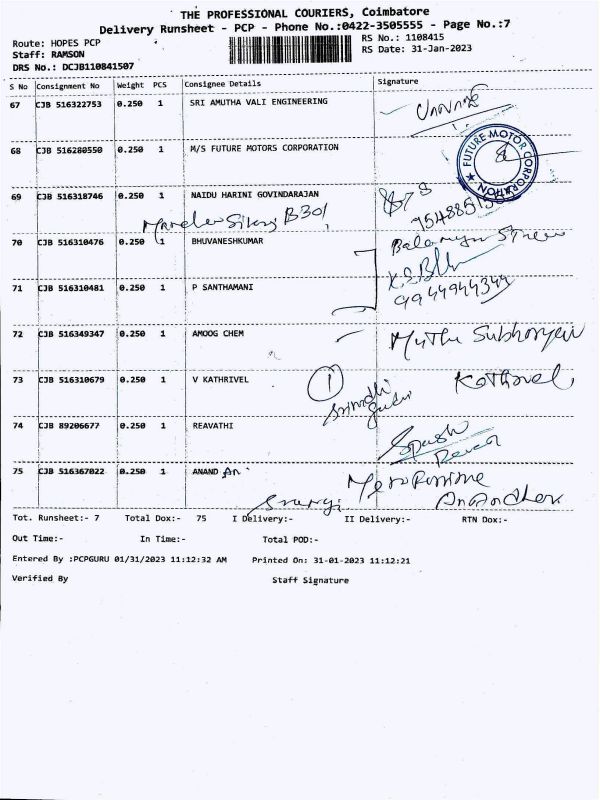 THE PROFESSIONAL COURIERS, Coimbatore
Delivery Runsheet - PCP - Phone No.:0422-3505555 - Page No.:7
Route: HOPES PCP
Staff: RAMSON
DRS No.: DCJB110841507
RS No.: 1108415
RS Date: 31-Jan-2023
S No Consignment No Weight PCS Consignee Details Signature
67 CJB 516322753 0.250 1 SRI AMUTHA VALI ENGINEERING
68 CJB 516280550 0.250 1 M/S FUTURE MOTORS CORPORATION
FUTURE MOTOR CORPORATION
69 CJB 516318746 0.250 1 NAIDU HARINI GOVINDARAJAN
B301
70 CJB 516310476 0.250 1 BHUVANESHKUMAR
71 CJB 516310481 0.250 1 P SANTHAMANI
9944944344
72 CJB 516349347 0.250 1 AMOOG CHEM
73 CJB 516310679 0.250 1 V KATHRIVEL
1
74 CJB 89206677 0.250 1 REAVATHI
75 CJB 516367022 0.250 1 ANAND
Tot. Runsheet:- 7 Total Dox:- 75 I Delivery:- II Delivery:- RTN Dox:-
Out Time:- In Time:- Total POD:-
Entered By :PCPGURU 01/31/2023 11:12:32 AM Printed On: 31-01-2023 11:12:21
Verified By Staff Signature